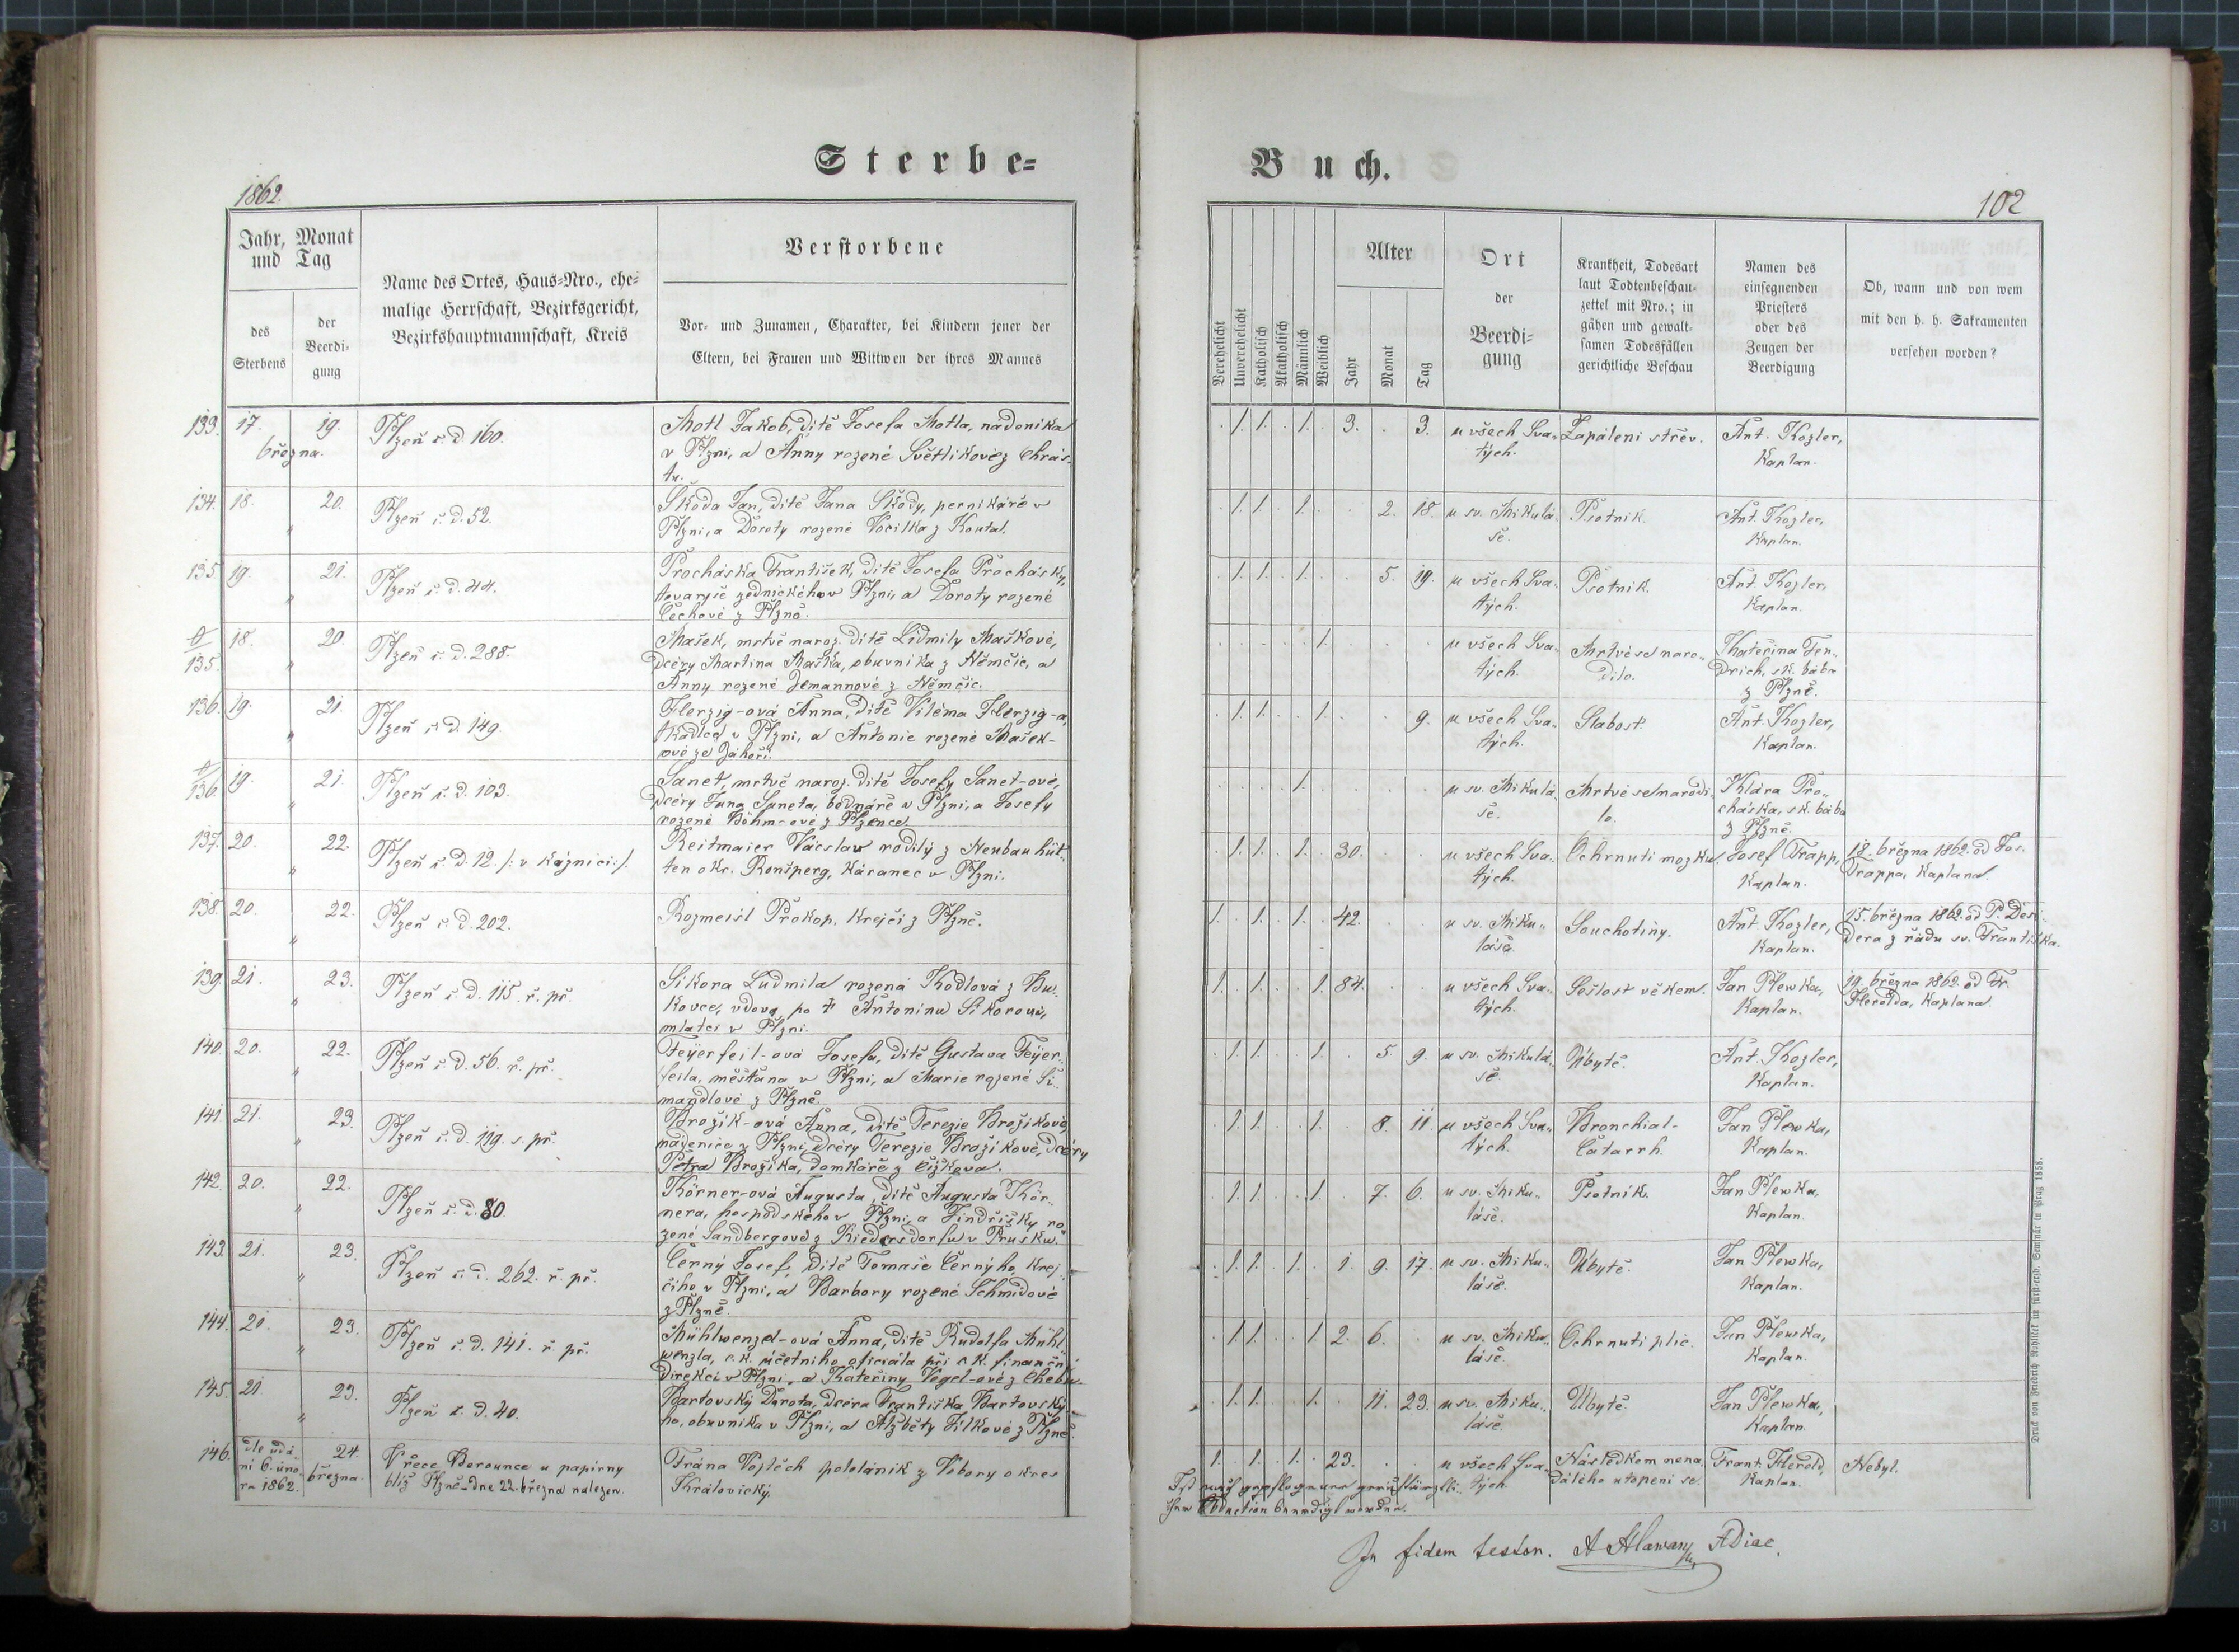 Sterbe-
Buch.
1862.
102
Jahr, Monat
und Tag
des
Sterbens
der
Beerdi-
gung
Name des Ortes, Haus-Nro., ehe-
malige Herrschaft, Bezirksgericht,
Bezirkshauptmannschaft, Kreis
Verstorbene
Vor- und Zunamen, Charakter, bei Kindern jener der
Eltern, bei Frauen und Wittwen der ihres Mannes
Verehelicht
Unverehelicht
Katholisch
Akatholisch
Männlich
Weiblich
Alter
Jahr
Monat
Tag
Ort
der
Beerdi-
gung
Krankheit, Todesart
laut Todtenbeschau-
zettel mit Nro.; in
gähen und gewalt-
samen Todesfällen
gerichtliche Beschau
Namen des
einsegnenden
Priesters
oder des
Zeugen der
Beerdigung
Ob, wann und von wem
mit den h. h. Sakramenten
versehen worden?
133. 17. 19.
března.
Plzeň č. d. 160.
Motl Jakob, dítě Josefa Motla, nádeníka
v Plzni, a Anny rozené Světlíkové z Chrás-
tu.
1. 1. 1. 3. 3.
u všech Sva-
tých.
Zapálení střev.
Ant. Kozler,
Kaplan.
134. 18. 20.
Plzeň č. d. 52.
Škoda Jan, dítě Jana Škody, perníkáře v
Plzni, a Doroty rozené Vočilka z Kouta.
1. 1. 1. 2. 18.
u sv. Mikulá-
še.
Psotník.
Ant. Kozler,
Kaplan.
135. 19. 21.
Plzeň č. d. 44.
Procháska František, dítě Josefa Prochásky,
tovaryše zednického v Plzni, a Doroty rozené
Čechové z Plzně.
1. 1. 1. 5. 19.
u všech Sva-
tých.
Psotník.
Ant. Kozler,
Kaplan.
135. 18. 20.
Plzeň č. d. 288.
Mašek, mrtvě naroz. dítě Lidmily Maškové,
dcéry Martina Maška, obuvníka z Němčic, a
Anny rozené Zemannové z Němčic.
1.
u všech Sva-
tých.
Mrtvé se naro-
dilo.
Kateřina Jen-
drich, sk. bába
z Plzně.
136. 19. 21.
Plzeň č. d. 149.
Herzig-ová Anna, dítě Viléma Herzig-a,
tkadlce v Plzni, a Antonie rozené Mašek-
ové ze Záhoří.
1. 1. 1. 9.
u všech Sva-
tých.
Slabost.
Ant. Kozler,
Kaplan.
136. 19. 21.
Plzeň č. d. 103.
Sanet, mrtvě naroz. dítě Josefy Sanet-ové,
dcéry Jana Saneta, bednáře v Plzni, a Josefy
rozené Böhm-ové z Plzence.
1.
u sv. Mikulá-
še.
Mrtvé se narodi-
lo.
Klára Pro-
cháska, sk. bába
z Plzně.
137. 20. 22.
Plzeň č. d. 12. /: v káznici :/.
Reitmaier Václav rodilý z Neubauhüt-
ten okr. Ronšperg, káranec v Plzni.
1. 1. 1. 30.
u všech Sva-
tých.
Ochrnutí mozku.
Josef Trapp,
Kaplan.
18. března 1862. od Jos.
Trappa, Kaplana.
138. 20. 22.
Plzeň č. d. 202.
Rozmeisl Prokop, krejčí z Plzně.
1. 1. 1. 42.
u sv. Miku-
láše.
Souchotiny.
Ant. Kozler,
Kaplan.
15. března 1862. od P. Desi-
dera z řádu sv. Františka.
139. 21. 23.
Plzeň č. d. 115. ř. př.
Sikora Ludmila rozená Kodlová z Bu-
kovce, vdova po † Antonínu Sikorovi,
mlatci v Plzni.
1. 1. 1. 84.
u všech Sva-
tých.
Sešlost věkem.
Jan Plewka,
Kaplan.
19. března 1862. od Fr.
Herolda, Kaplana.
140. 20. 22.
Plzeň č. d. 56. ř. př.
Feÿerfeil-ová Josefa, dítě Gustava Feÿer-
feila, měšťana v Plzni, a Marie rozené Si-
mandlové z Plzně.
1. 1. 1. 5. 9.
u sv. Mikulá-
še.
Úbytě.
Ant. Kozler,
Kaplan.
141. 21. 23.
Plzeň č. d. 119. s. př.
Brožík-ová Anna, dítě Terezie Brožíkové,
nádenice v Plzni, dcéry Terezie Brožíkové, dcéry
Petra Brožíka, domkáře z Čižkova.
1. 1. 1. 8. 11.
u všech Sva-
tých.
Bronchial-
Catarrh.
Jan Plewka,
Kaplan.
142. 20. 22.
Plzeň č. d. 80
Körner-ová Augusta, dítě Augusta Kör-
nera, hospodského v Plzni, a Jindřišky ro-
zené Sandbergové z Riedersdorfu v Prusku.
1. 1. 1. 7. 6.
u sv. Miku-
láše.
Psotník.
Jan Plewka,
Kaplan.
143. 21. 23.
Plzeň č. d. 262. ř. př.
Černý Josef, dítě Tomáše Černýho, krej-
čího v Plzni, a Barbory rozené Schmidové
z Plzně.
1. 1. 1. 1. 9. 17.
u sv. Miku-
láše.
Úbytě.
Jan Plewka,
Kaplan.
144. 21. 23.
Plzeň č. d. 141. ř. př.
Mühlwenzel-ová Anna, dítě Rudolfa Mühl-
wenzla, c. k. účetního oficiála při c. k. finanční
direkci v Plzni, a Kateřiny Vogel-ové z Chebu.
1. 1. 1. 2. 6.
u sv. Miku-
láše.
Ochrnutí plic.
Jan Plewka,
Kaplan.
145. 21 23.
Plzeň č. d. 40.
Bartovský Dorota, dcéra Františka Bartovský-
ho, obuvníka v Plzni, a Alžběty Jílkové z Plzně.
1. 1. 1. 11. 23.
u sv. Miku-
láše.
Úbytě.
Jan Plewka,
Kaplan.
146. dle udá-
ní 6. úno-
ra 1862.
24.
března.
V řece Berounce u papírny
blíž Plzně dne 22. března nalezen.
Frána Vojtěch pololáník z Vobory okres
Královický.
1. 1. 1. 23.
u všech Sva-
tých.
Následkem nena-
dálého utopení se.
Frant. Herold,
Kaplan.
Nebyl.
Ist nach gepflogener gerichtsärztli-
cher Obduction beerdigt worden.
In fidem testor.
Druck von Friedrich Rohliček im fürsterzb. Seminär in Prag 1858.